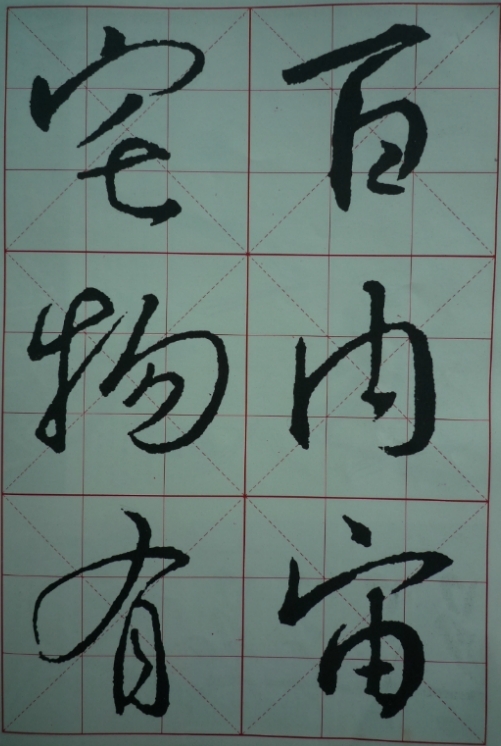 百内宙
宅物有